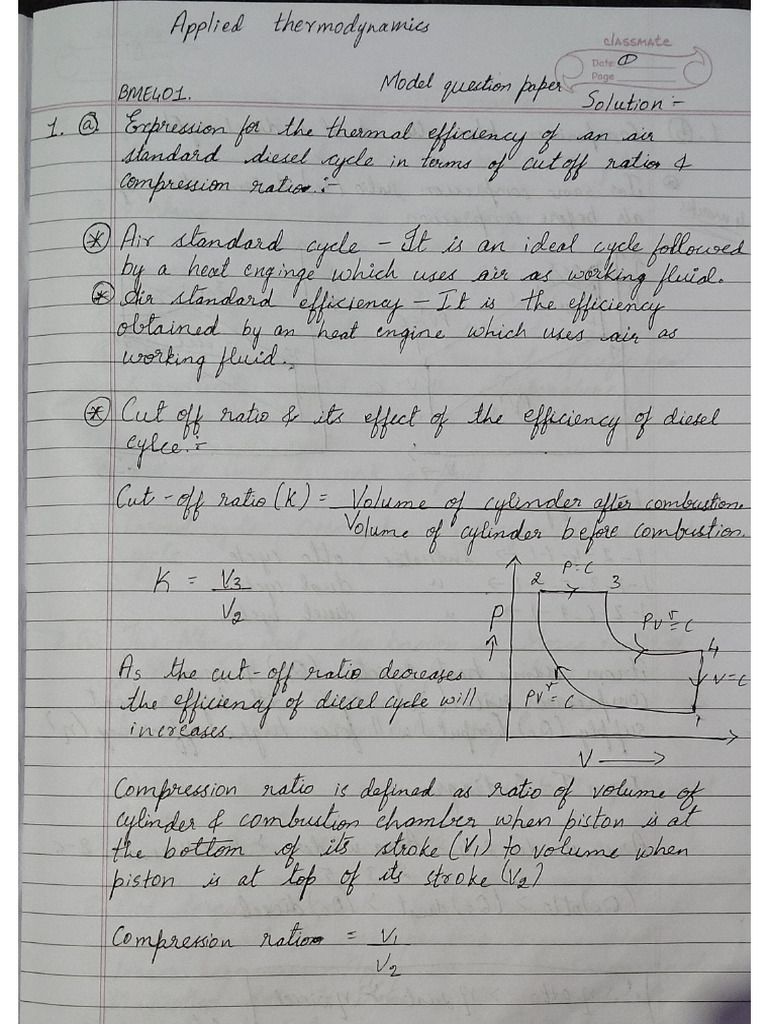 Applied thermodynamics
classmate
Date ①
Page
BME401. Model question paper
Solution :-
1. ⓐ Expression for the thermal efficiency of an air
standard diesel cycle in terms of cut off ratio &
compression ratio :-
* Air standard cycle - It is an ideal cycle followed
by a heat enginge which uses air as working fluid.
* Air standard efficiency - It is the efficiency
obtained by an heat engine which uses air as
working fluid.
* Cut off ratio & its effect of the efficiency of diesel
cylce. :-
Cut-off ratio (K) = Volume of cylinder after combustion.
Volume of cylinder before combustion.
K = V3
V2
P=C
2 3
P
PV^γ=C
4
V=C
PV^γ=C
1
V
As the cut-off ratio decreases
the efficiency of diesel cycle will
increases.
Compression ratio is defined as ratio of volume of
cylinder & combustion chamber when piston is at
the bottom of its stroke (V1) to volume when
piston is at top of its stroke (V2)
Compression ratio = V1
V2